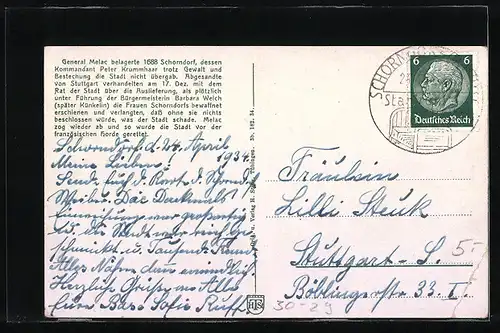 General Melac belagerte 1688 Schorndorf, dessen
Kommandant Peter Krummhaar trotz Gewalt und
Bestechung die Stadt nicht übergab. Abgesandte
von Stuttgart verhandelten am 17. Dez. mit dem
Rat der Stadt über die Auslieferung, als plötzlich
unter Führung der Bürgermeisterin Barbara Walch
(später Künkelin) die Frauen Schorndorfs bewaffnet
erschienen und verlangten, daß ohne sie nichts
beschlossen würde, was der Stadt schade. Melac
zog wieder ab und so wurde die Stadt vor der
französischen Horde gerettet.
Schorndorf d. 24. April
1934
Meine Lieben!
Send Euch d. Karte d. Schorndorf
Das Denkmals
Einweihung war großartig
u. die Stadt war reich ge
schmückt u. Tausende
Alles
Herzliche Grüße an Alle
Eure Base Sofie Ruff
Verlag
SCHORNDORF
6 6
Deutsches Reich
Fräulein
Lilli Steuk
Stuttgart-S.
Böblingerstr 33 I
5-
30-29